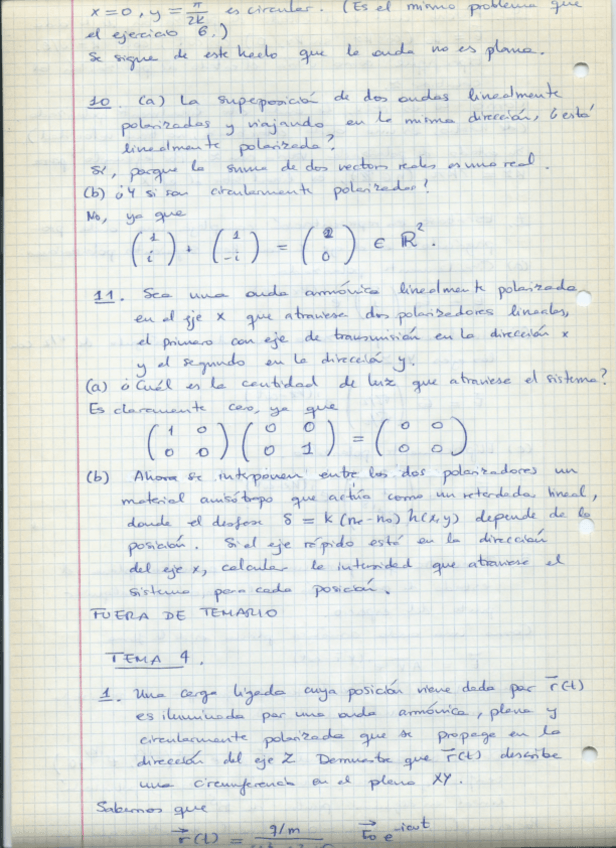 x=0, y = π/2k es circular. (Es el mismo problema que
el ejercicio 6.)
Se sigue de este hecho que la onda no es plana.
10. (a) La superposición de dos ondas linealmente
polarizadas y viajando en la misma dirección, ¿está
linealmente polarizada?
Sí, porque la suma de dos vectores reales es uno real.
(b) ¿Y si son circularmente polarizadas?
No, ya que
(1 i) + (1 -i) = (2 0) ∈ ℝ².
11. Sea una onda armónica linealmente polarizada
en el eje x que atraviesa dos polarizadores lineales,
el primero con eje de transmisión en la dirección x
y el segundo en la dirección y.
(a) ¿Cuál es la cantidad de luz que atraviesa el sistema?
Es claramente cero, ya que
(1 0 0 0) (0 0 0 1) = (0 0 0 0)
(b) Ahora se interponen entre los dos polarizadores un
material anisótropo que actúa como un retardador lineal,
donde el desfase δ = k(ne-no) h(x,y) depende de la
posición. Si el eje rápido está en la dirección
del eje x, calcular la intensidad que atraviesa el
sistema para cada posición.
FUERA DE TEMARIO
TEMA 4.
1. Una carga ligada cuya posición viene dada por r⃗(t)
es iluminada por una onda armónica, plana y
circularmente polarizada que se propaga en la
dirección del eje Z. Demuestra que r⃗(t) describe
una circunferencia en el plano XY.
Sabemos que
r⃗(t) = q/m E⃗o e^-iωt